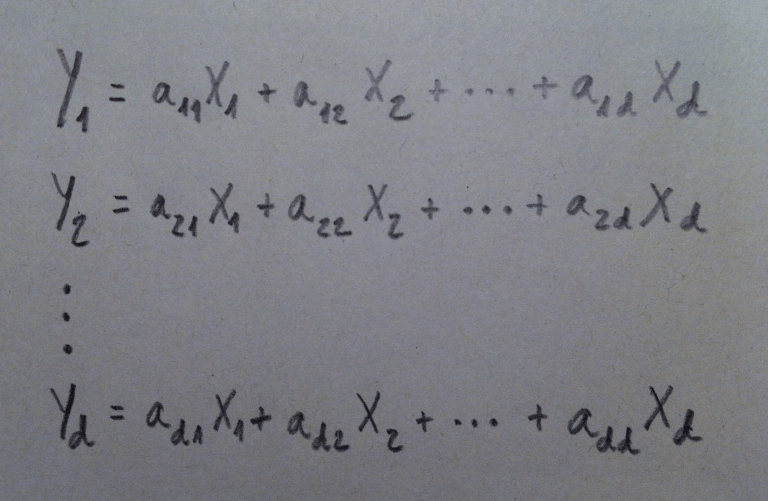 Y₁ = a₁₁X₁ + a₁₂ X₂ + ... + a₁d Xd
Y₂ = a₂₁X₁ + a₂₂ X₂ + ... + a₂d Xd
⋮
Yd = ad₁X₁ + ad₂ X₂ + ... + add Xd